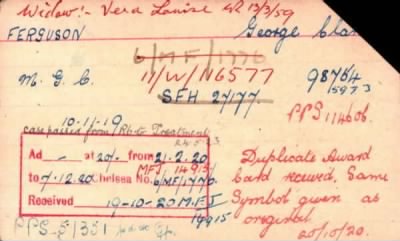 Widow:- Vera Louise 13/3/59
FERGUSON George Cla
6/MF/1776
M. G. C. 11/W/116577 98764/5973
SFH 27177.
PPS 114606.
10-11-19
case passed from Treatment
24.5.23
Ad — at 20/- from 21.2.20
MFJ 14915/
to 7.12.20 Chelsea No. 6/MF/1776
Received 19-10-20 MFJ
14915
Duplicate Award
Card received. Same
Symbol given as
original
20/10/20.
PPS-51351